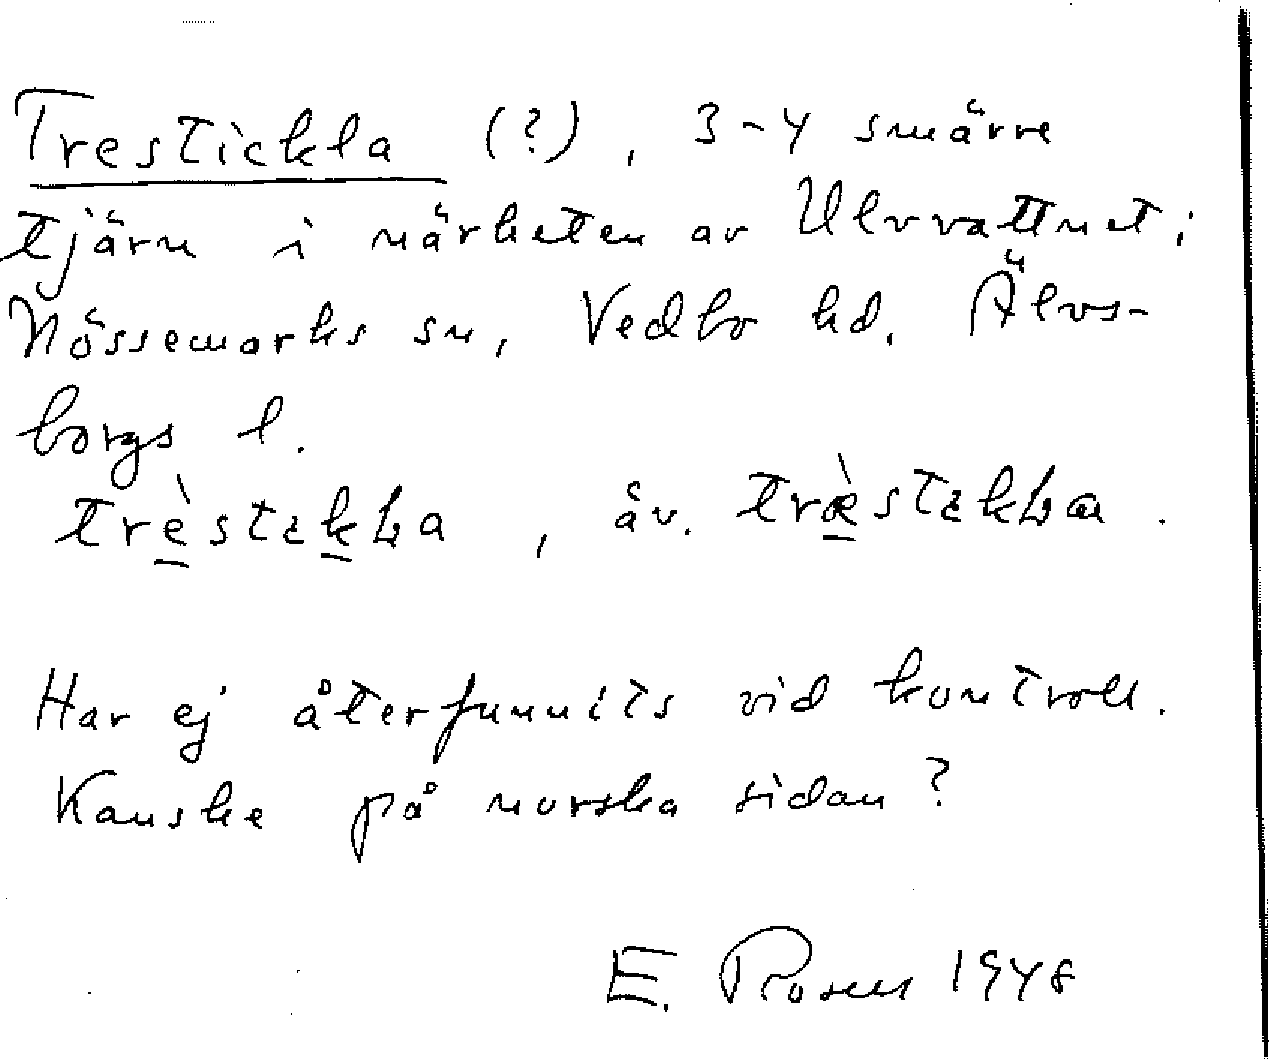 Trestickla (?), 3-4 smärre
tjärn i närheten av Ulvvattnet;
Nössemarks sn, Vedbo hd. Älvs-
borgs l.
trèstikka, äv. træ̀stikka.
Har ej återfunnits vid kontroll.
Kanske på norska sidan?
E. Rosell 1948